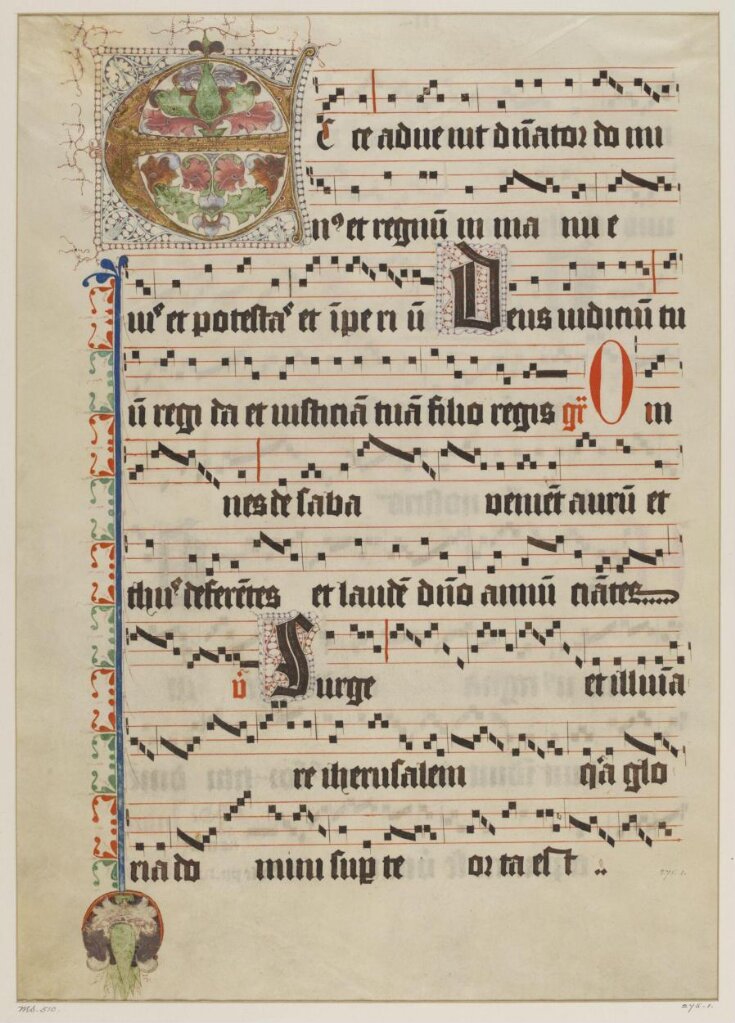 Ecce adue nit dn̄ator do mi
nꝰ et regnū in ma nu e
iuꝰ et potestaꝰ et īpe ri ū Deus iudiciū tu
ū regi da et iusticiā tuā filio regis gr̄ O m
nes de saba venīet aurū et
thuꝰ deferētes et laudē dn̄o annū ciātes
v̄ Surge et illuīa
re iherusalem q̄a glo
ria do mini suꝑ te or ta est ..
Ms. 510.